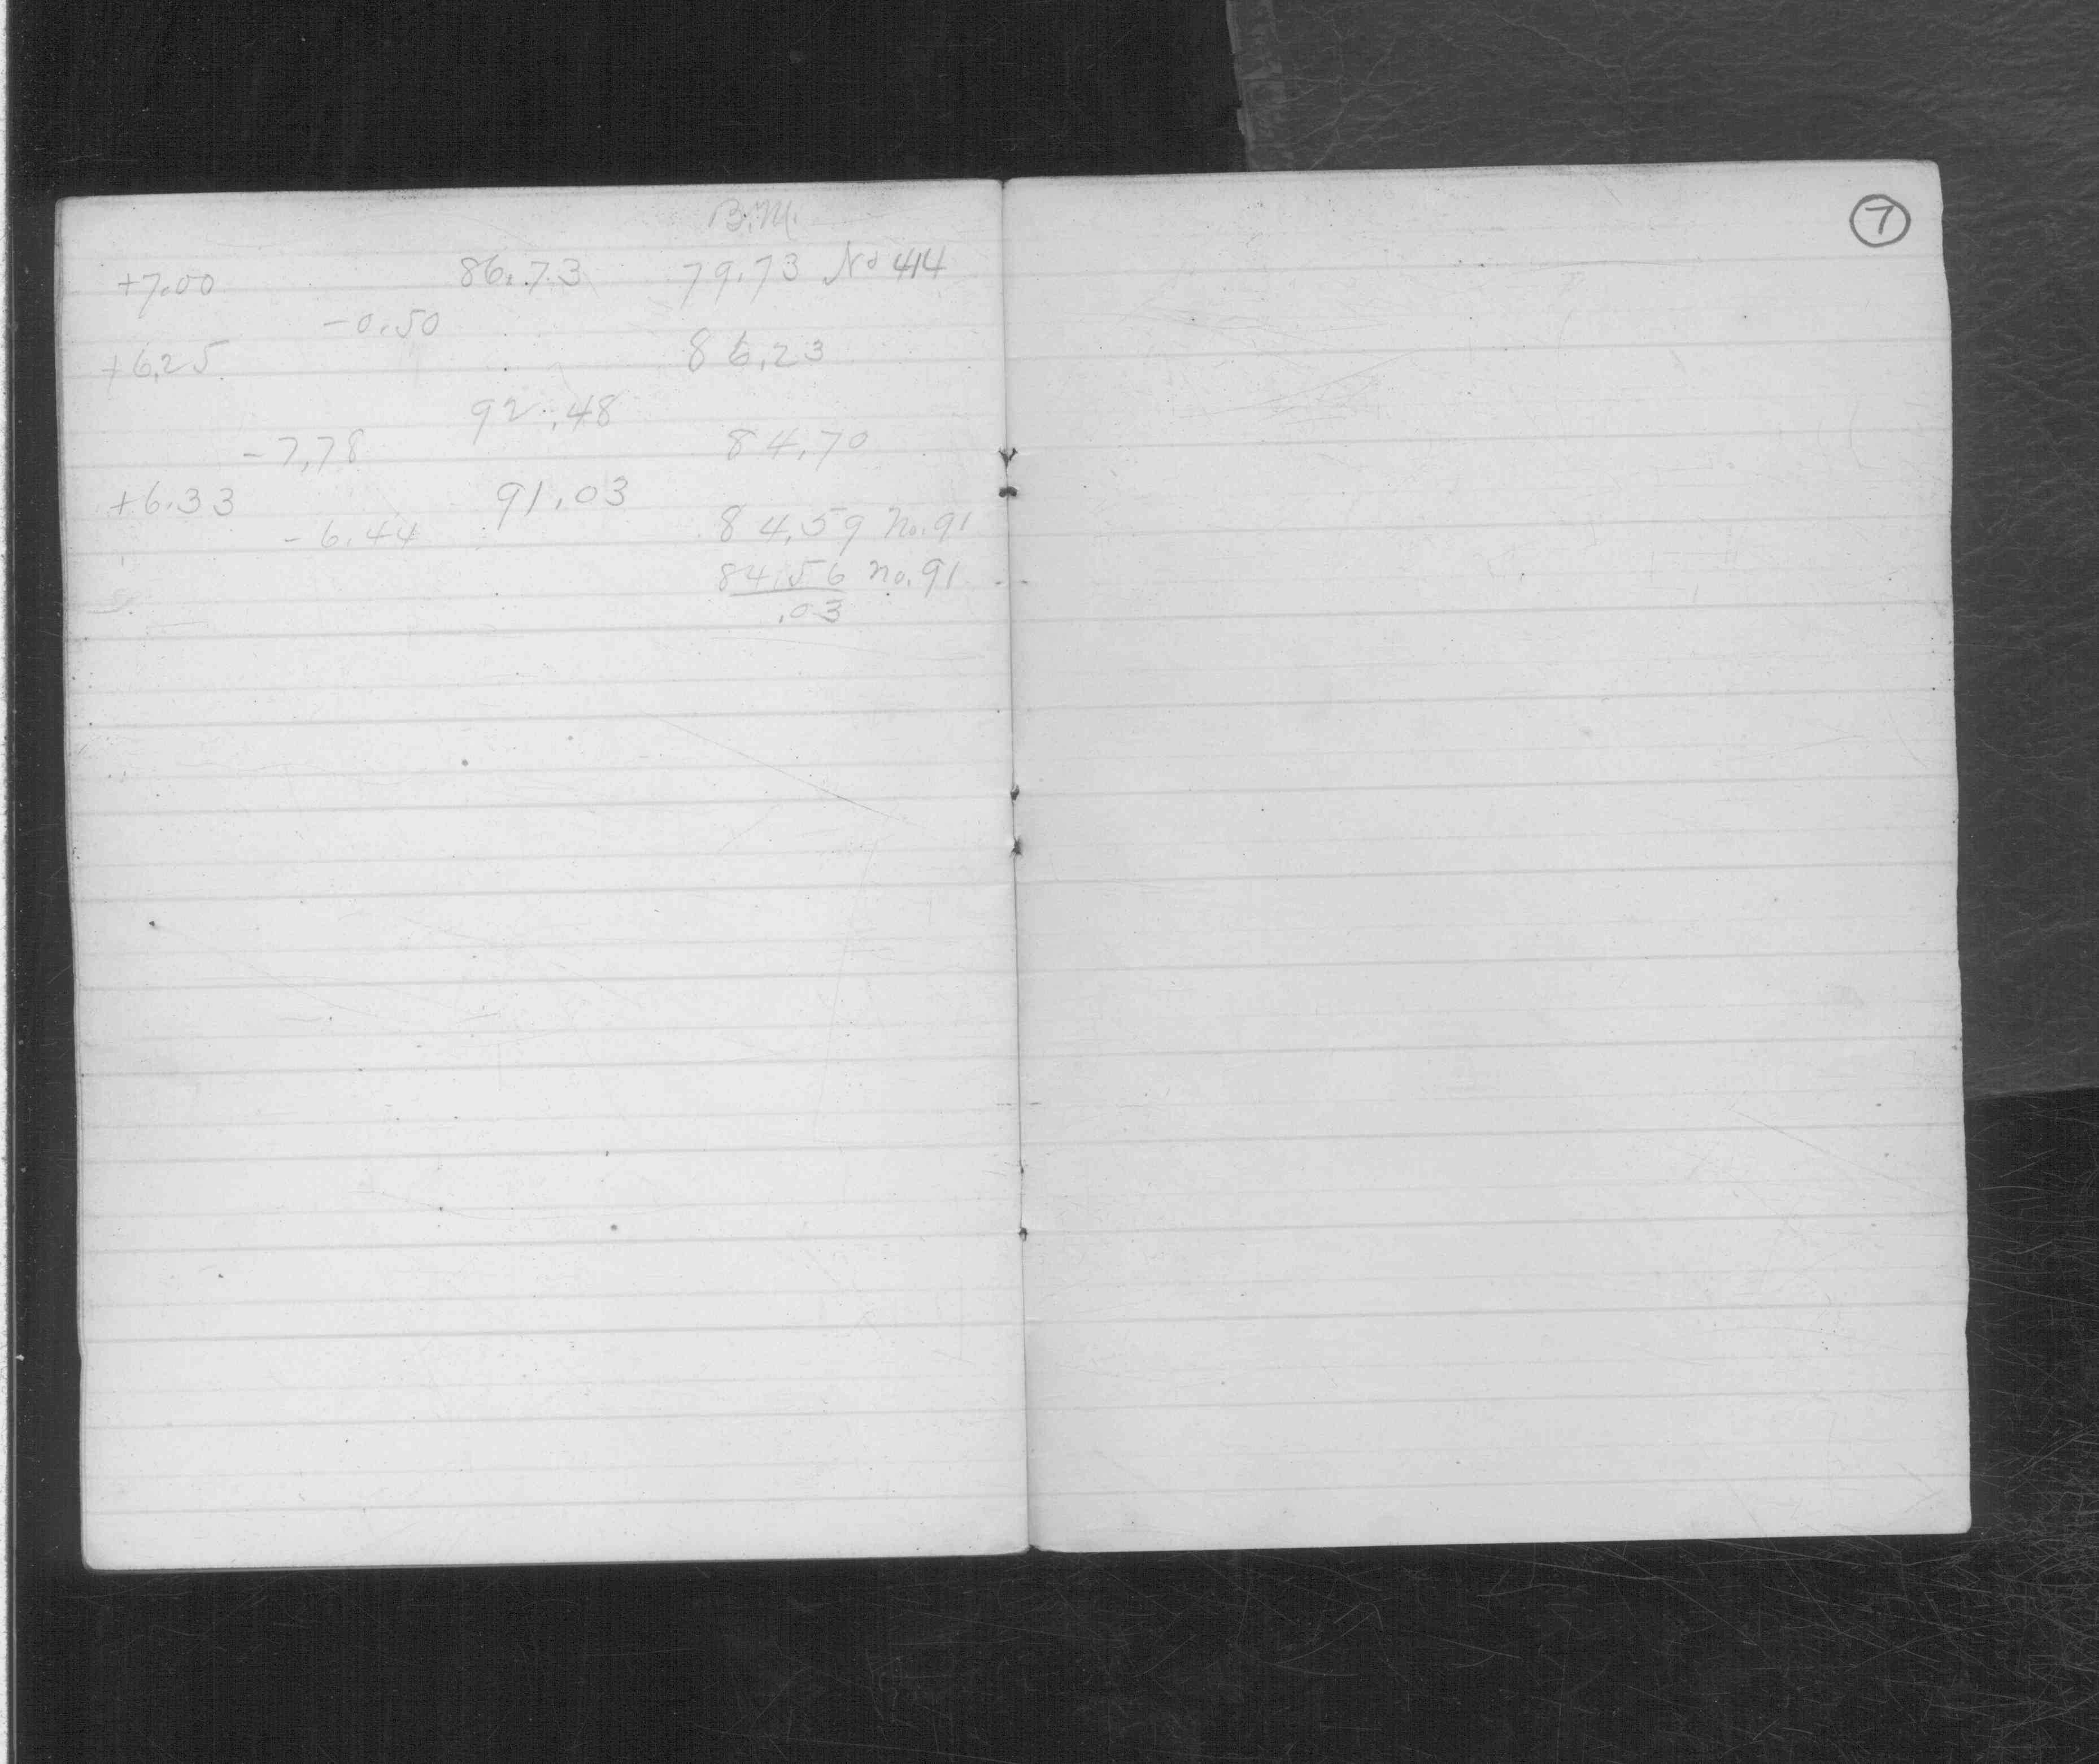 B.M.
+7.00 86.73 79.73 No 414
-0.50
+6.25 86.23
92.48
-7.78 84.70
+6.33 91.03
-6.44 84.59 No. 91
84.56 no. 91
.03
7